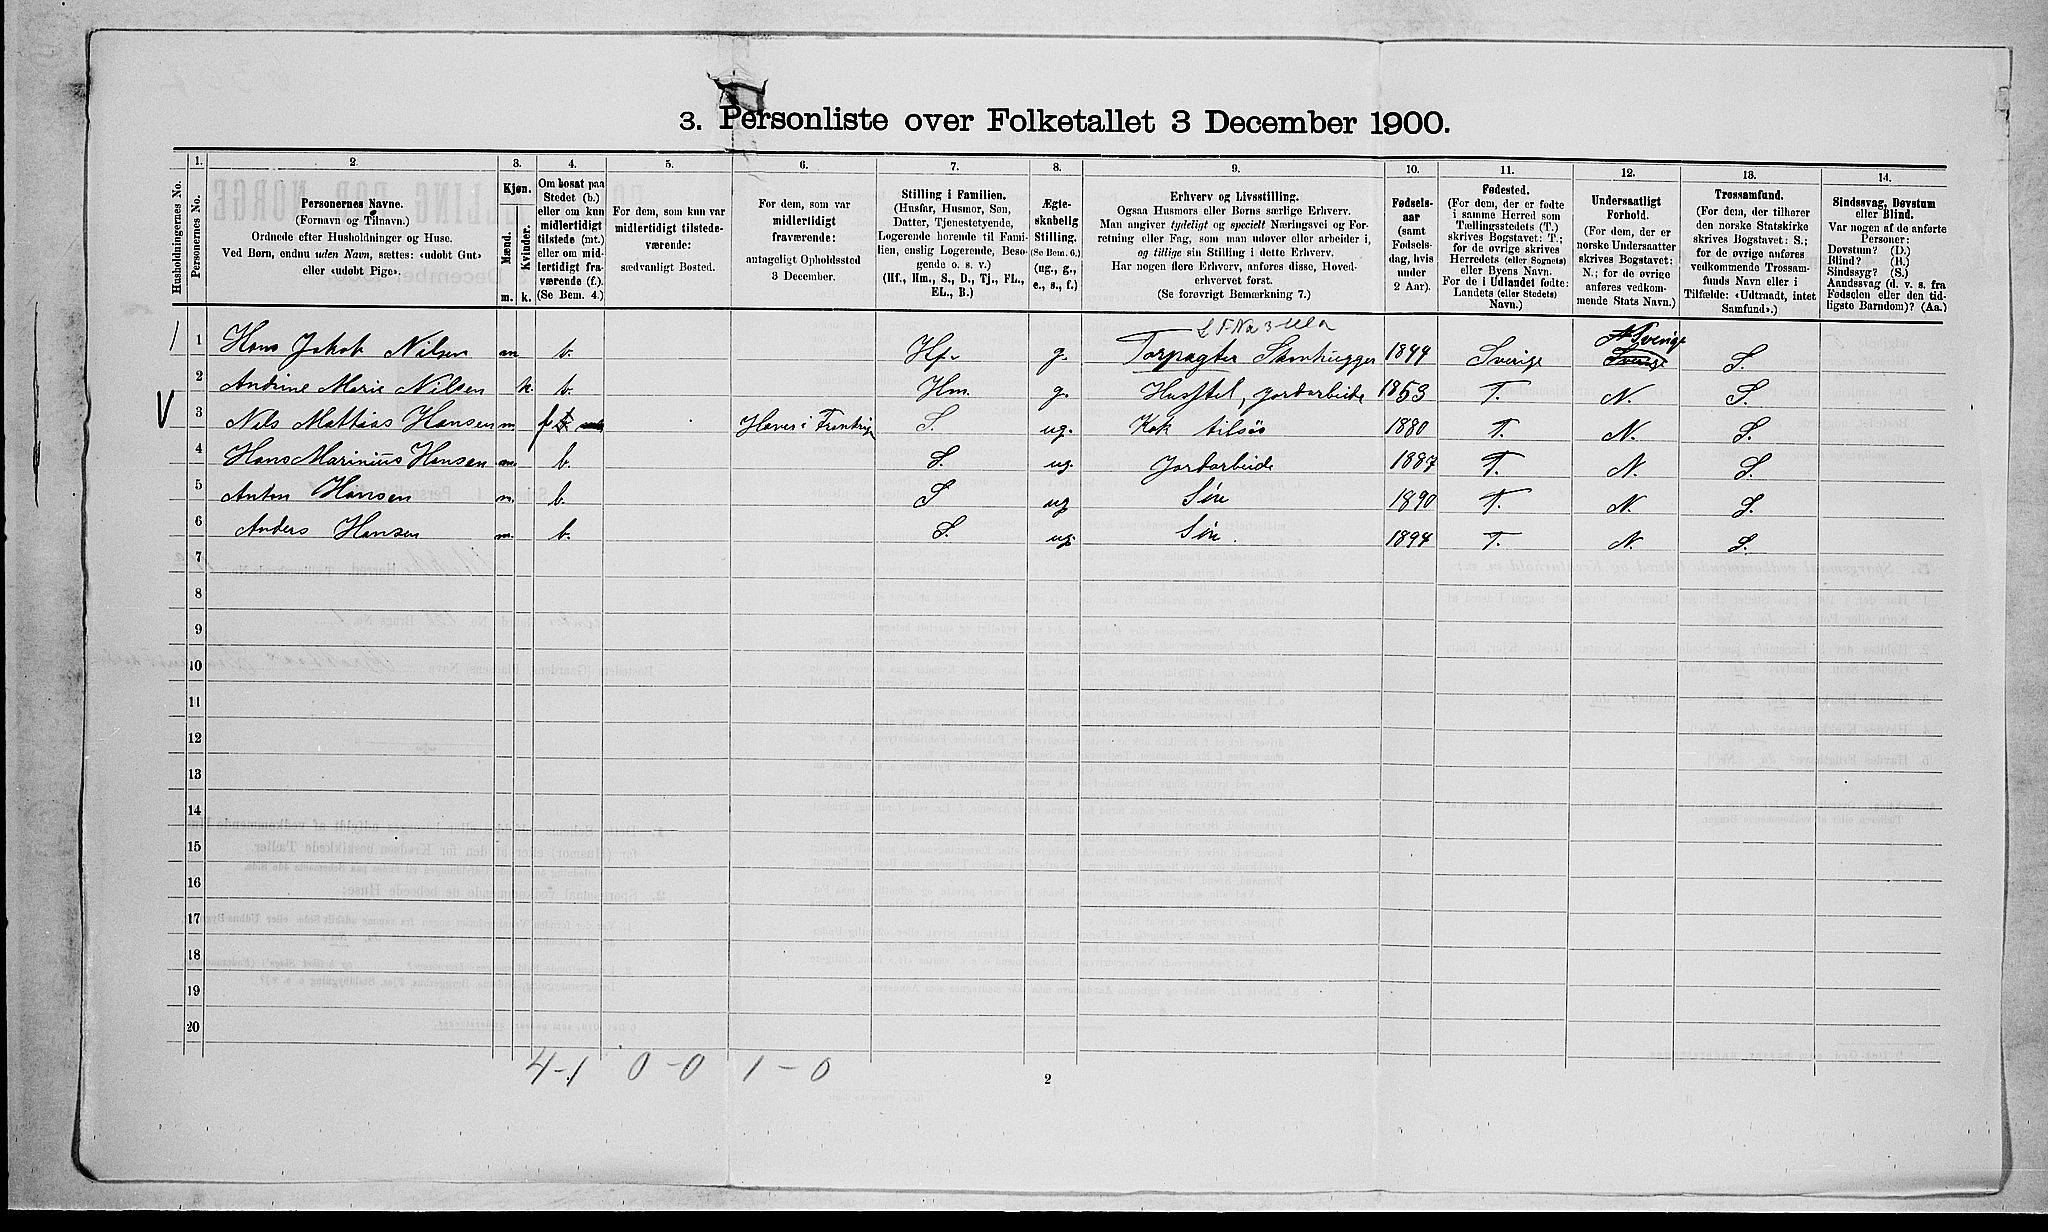 3. Personliste over Folketallet 3 December 1900.
Husholdningernes No.
1. Personernes No.
2. Personernes Navne.
(Fornavn og Tilnavn.)
Ordnede efter Husholdninger og Huse.
Ved Børn, endnu uden Navn, sættes: «udobt Gut»
eller «udobt Pige».
3. Kjøn.
Mænd. m.
Kvinder. k.
4. Om bosat paa
Stedet (b.)
eller om kun
midlertidigt
tilstede (mt.)
eller om mid-
lertidigt fra-
værende (f.).
(Se Bem. 4.)
5. For dem, som kun var
midlertidigt tilstede-
værende:
sædvanligt Bosted.
6. For dem, som var
midlertidigt
fraværende:
antageligt Opholdssted
3 December.
7. Stilling i Familien.
(Husfar, Husmor, Søn,
Datter, Tjenestetyende,
Logerende hørende til Fami-
lien, enslig Logerende, Beso-
gende o. s. v.)
(Hf., Hm., S., D., Tj., FL.,
EL., B.)
8. Ægte-
skabelig
Stilling.
(Se Bem. 6.)
(ug., g.,
e., s., f.)
9. Erhverv og Livsstilling.
Ogsaa Husmors eller Børns særlige Erhverv.
Man angiver tydeligt og specielt Næringsvei og For-
retning eller Fag, som man udøver eller arbeider i,
og tillige sin Stilling i dette Erhverv.
Har nogen flere Erhverv, anføres disse, Hoved-
erhvervet først.
(Se forøvrigt Bemærkning 7.)
10. Fødsels-
aar
(samt
Fødsels-
dag, hvis
under
2 Aar).
11. Fødested.
(For dem, der er fødte
i samme Herred som
Tællingsstedets (T.)
skrives Bogstavet: T.;
for de øvrige skrives
Herredets (eller Sognets)
eller Byens Navn.
For de i Udlandet fødte:
Landets (eller Stedets)
Navn.)
12. Undersaatligt
Forhold.
(For dem, der er
norske Undersaatter
skrives Bogstavet:
N.; for de øvrige
anføres vedkom-
mende Stats Navn.)
13. Trossamfund.
(For dem, der tilhører
den norske Statskirke
skrives Bogstavet: S.;
for de øvrige anføres
vedkommende Trossam-
funds Navn eller i
Tilfælde: «Udtraadt, intet
Samfund».)
14. Sindssvag, Døvstum
eller Blind.
Var nogen af de anførte
Personer:
Døvstum? (D.)
Blind? (B.)
Sindssyg? (S.)
Aandssvag (d. v. s. fra
Fødselen eller den tid-
ligste Barndom)? (Aa.)
1 1 Hans Jakob Nilsen m b. Hf. g. Torpagter Stenhugger 1849 Sverige N Sverige S.
2 Andrine Marie Nilsen k. b. Hm. g. Husstel, jordarbeide 1853 T. N. S.
V 3 Nils Mattias Hansen m f S. ug. Kok tilsøs 1880 T. N. S.
4 Hans Marinius Hansen m. b. S. ug. Jordarbeide 1887 T. N. S.
5 Anton Hansen m. b. S ug Søn 1890 T. N. S.
6 Anders Hansen m. b. S. ug. Søn. 1894 T. N. S.
7
8
9
10
11
12
13
14
15
16
17
18
19
20
4-1 0-0 1-0
2